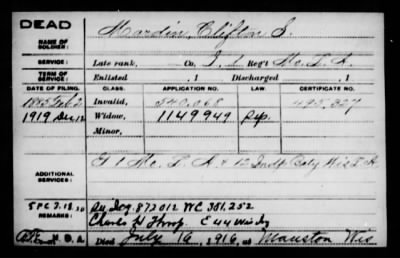 DEAD
NAME OF SOLDIER: Mardin, Clifton S.
SERVICE: Late rank, Co. I, 1 Reg't Mo. L. A.
TERM OF SERVICE: Enlisted , 1 Discharged , 1
DATE OF FILING. CLASS. APPLICATION NO. LAW. CERTIFICATE NO.
1885 Feb. 2 Invalid, 540,068 495,327
1919 Dec. 12 Widow, 1149949
Minor,
ADDITIONAL SERVICES: & 12 Indp Baty Wis L A
REMARKS: 872012 WC 381,252
Charles H Throop E 44 Wis Inf
Died July 16, 1916, at Mauston Wis